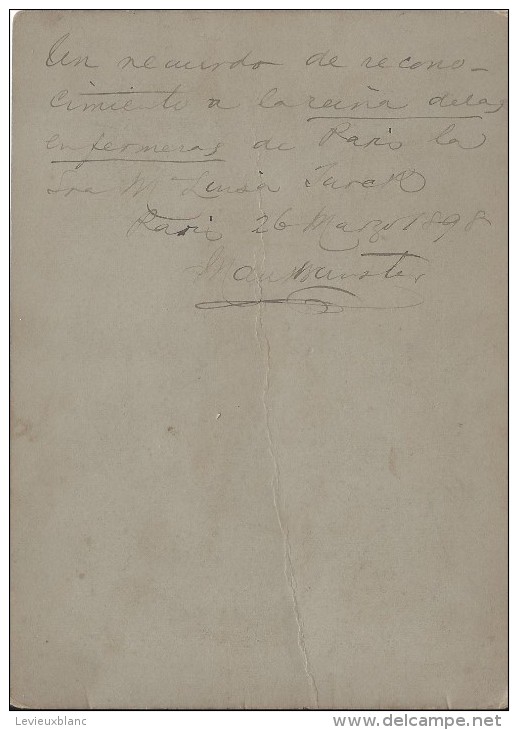 Un recuerdo de recono-
cimiento a la reina de las
enfermeras de Paris la
Sra Mª Luisa Turck
Paris 26 Marzo 1898
Levieuxblanc
www.delcampe.net